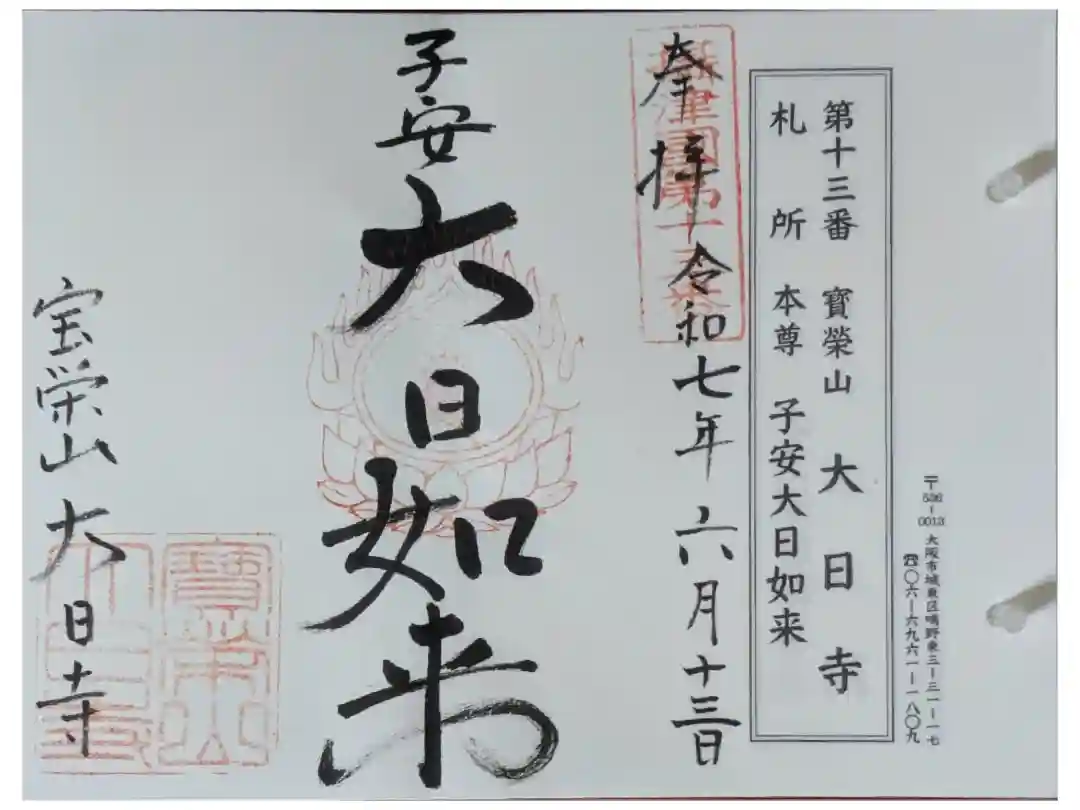 〒536-0013 大阪市城東区鴫野東三-三一-一七
☎〇六-六九六一-一八〇九
第十三番 寶榮山 大日寺
札所 本尊 子安大日如来
攝津國第十三番
奉拝 令和七年六月十三日
子安大日如来
宝栄山大日寺